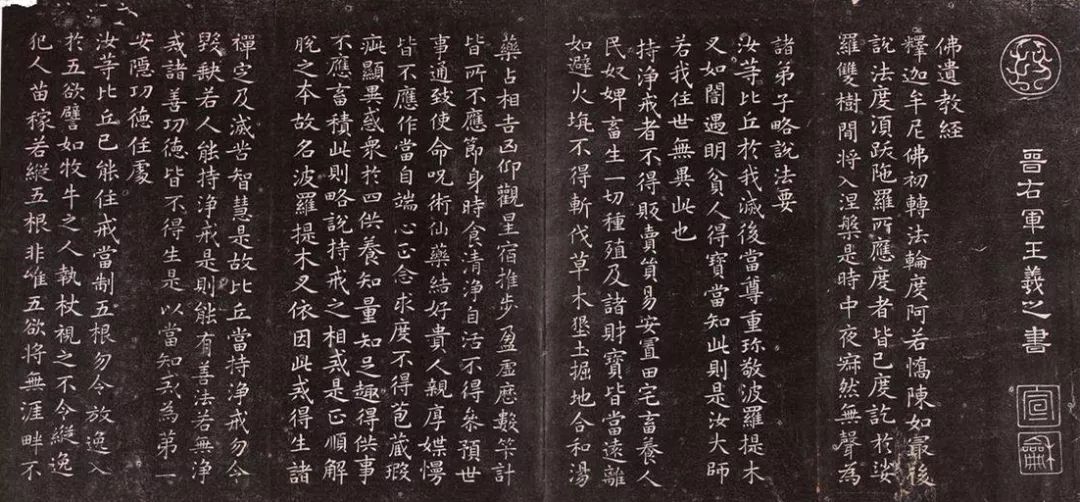 晉右軍王羲之書
宣
龢
佛遺教経
釋迦牟尼佛初轉法輪度阿若憍陳如冣後
說法度湏跋陁羅所應度者皆已度訖於娑
羅雙樹間将入涅槃是時中夜寂然無聲為
諸弟子略說法要
汝等比丘於我滅後當尊重珎敬波羅提木
叉如闇遇明貧人得寶當知此則是汝大師
若我住世無異此也
持淨戒者不得販賣貿易安置田宅畜養人
民奴婢畜生一切種殖及諸財寶皆當遠離
如避火坑不得斬伐草木墾土掘地合和湯
藥占相吉凶仰觀星宿推步盈虛應數筭計
皆所不應節身時食清淨自活不得參預世
事通致使命呪術仙藥結好貴人親厚媟慢
皆不應作當自端心正念求度不得苞藏瑕
疵顯異惑衆於四供養知量知足趣得供事
不應畜積此則略說持戒之相戒是正順解
脫之本故名波羅提木叉依因此戒得生諸
禪定及滅苦智慧是故比丘當持淨戒勿令
毀缺若人能持淨戒是則能有善法若無淨
戒諸善功德皆不得生是以當知戒為第一
安隱功德住處
汝等比丘已能住戒當制五根勿令放逸入
於五欲譬如牧牛之人執杖視之不令縱逸
犯人苗稼若縱五根非唯五欲将無涯畔不